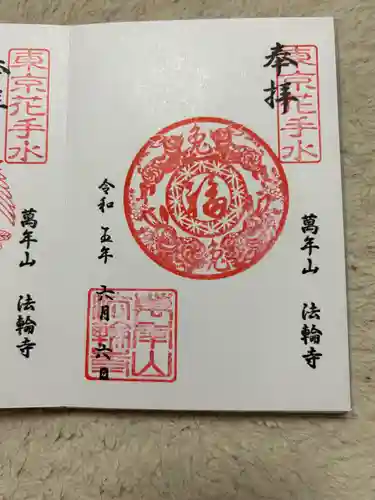 奉拝
東京花手水
兔
福
兔
萬年山 法輪寺
令和五年 六月六日
萬年山
法輪寺
東京花手水
萬年山 法輪寺